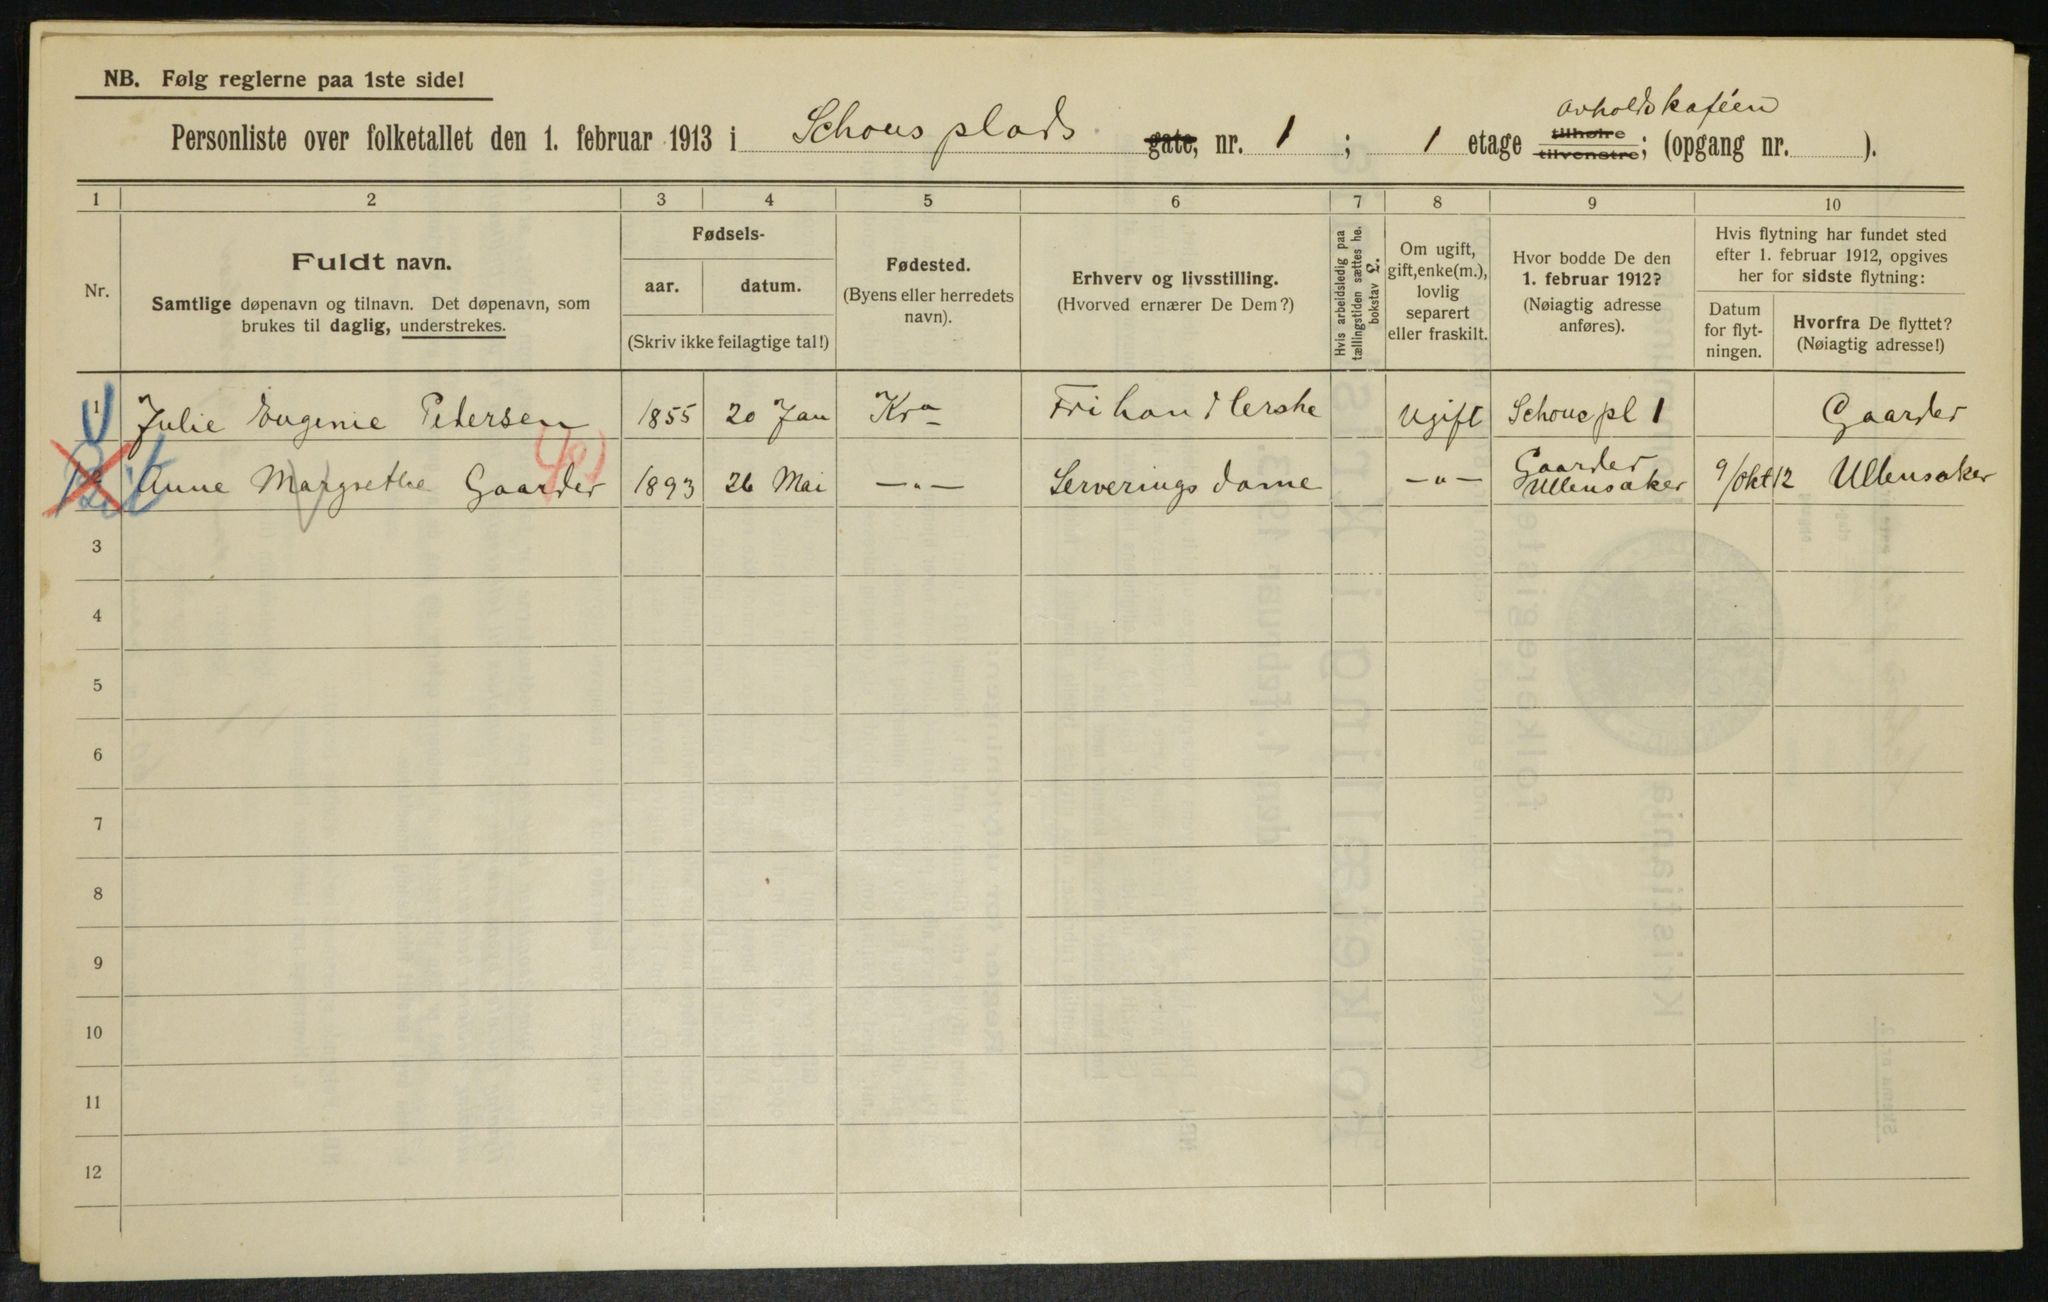 NB. Følg reglerne paa 1ste side!
avholdskaféen
Personliste over folketallet den 1. februar 1913 i Schous plads gate, nr. 1 ; 1 etage tilhøire tilvenstre; (opgang nr. ).
1 2 3 4 5 6 7 8 9 10
Nr.
Fuldt navn.
Samtlige døpenavn og tilnavn. Det døpenavn, som
brukes til daglig, understrekes.
Fødsels-
aar. datum.
(Skriv ikke feilagtige tal!)
Fødested.
(Byens eller herredets
navn).
Erhverv og livsstilling.
(Hvorved ernærer De Dem?)
Hvis arbeidsledig paa
tællingstiden sættes he.
bokstav L.
Om ugift,
gift, enke(m.),
lovlig
separert
eller fraskilt.
Hvor bodde De den
1. februar 1912?
(Nøiagtig adresse
anføres).
Hvis flytning har fundet sted
efter 1. februar 1912, opgives
her for sidste flytning:
Datum
for flyt-
ningen.
Hvorfra De flyttet?
(Nøiagtig adresse!)
1 Julie Eugenie Pedersen 1855 20 Jan Kra Frihandlerske Ugift Schous pl 1 Gaarder
2 Anne Margrethe Gaarder 1893 26 Mai —"— Serveringsdame —"— Gaarder Ullensaker 9/Okt 12 Ullensaker
3
4
5
6
7
8
9
10
11
12